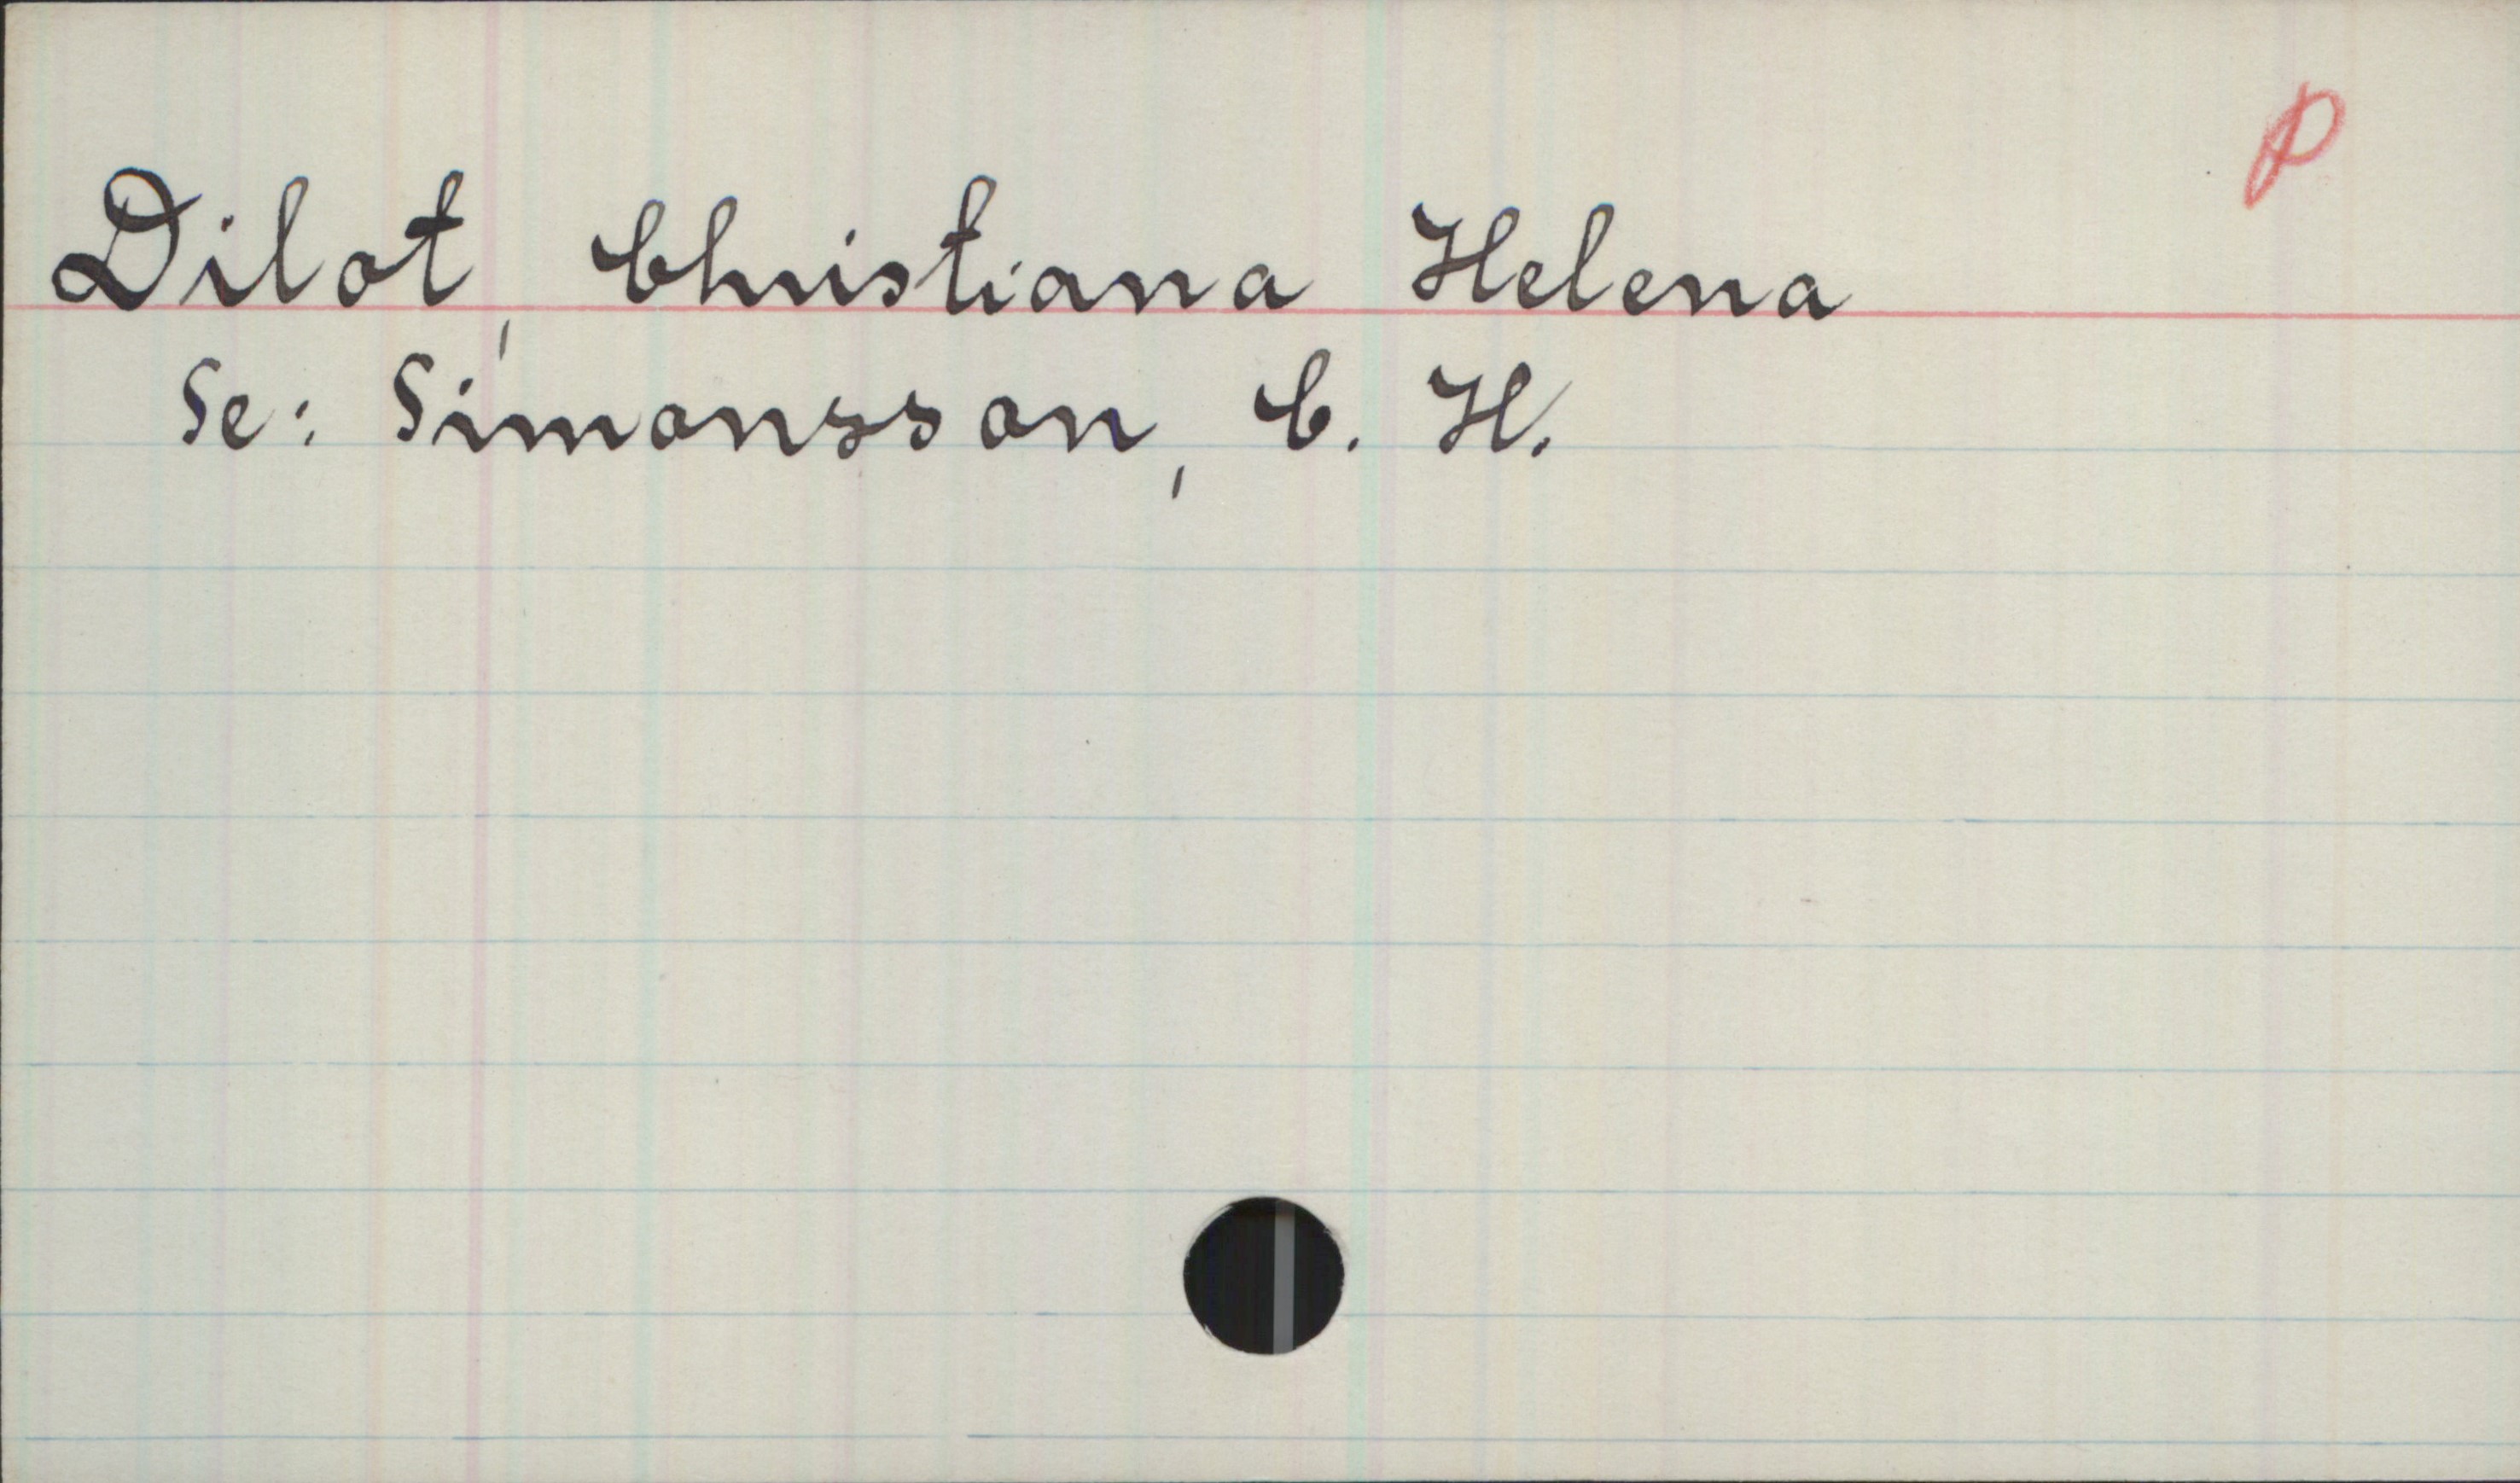 P
Dilot, Christiana Helena
Se: Simonsson, C. H.